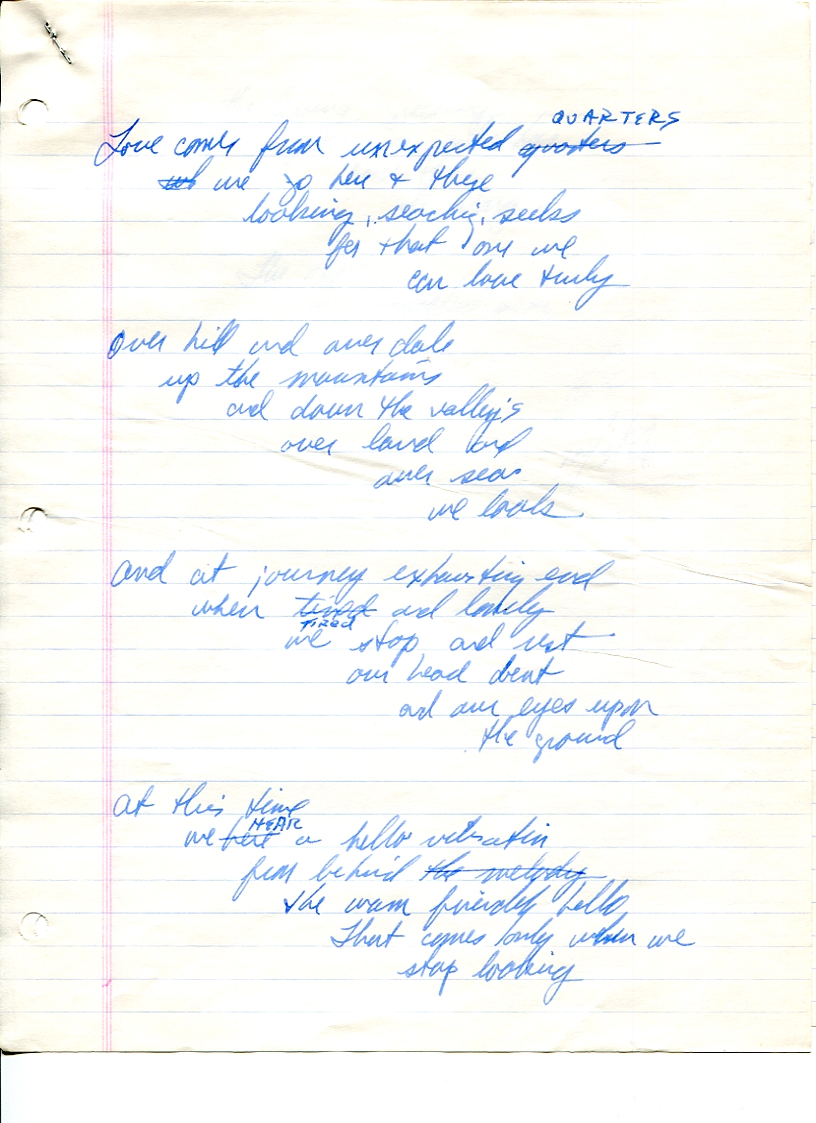 QUARTERS
Love comes from unexpected quarters
we go here & there
looking, seaching, seeks
for that one we
can love truly
Over hill and over dale
up the mountains
and down the valley's
over land and
over seas
we look
And at journey exhausting end
when tired and lonely
TIRED
we stop and rest
our head bent
and our eyes upon
the ground
At this time
HEAR
we here a hello vibratin
from behind the melody
the warm friendly hello
That comes only when we
stop looking